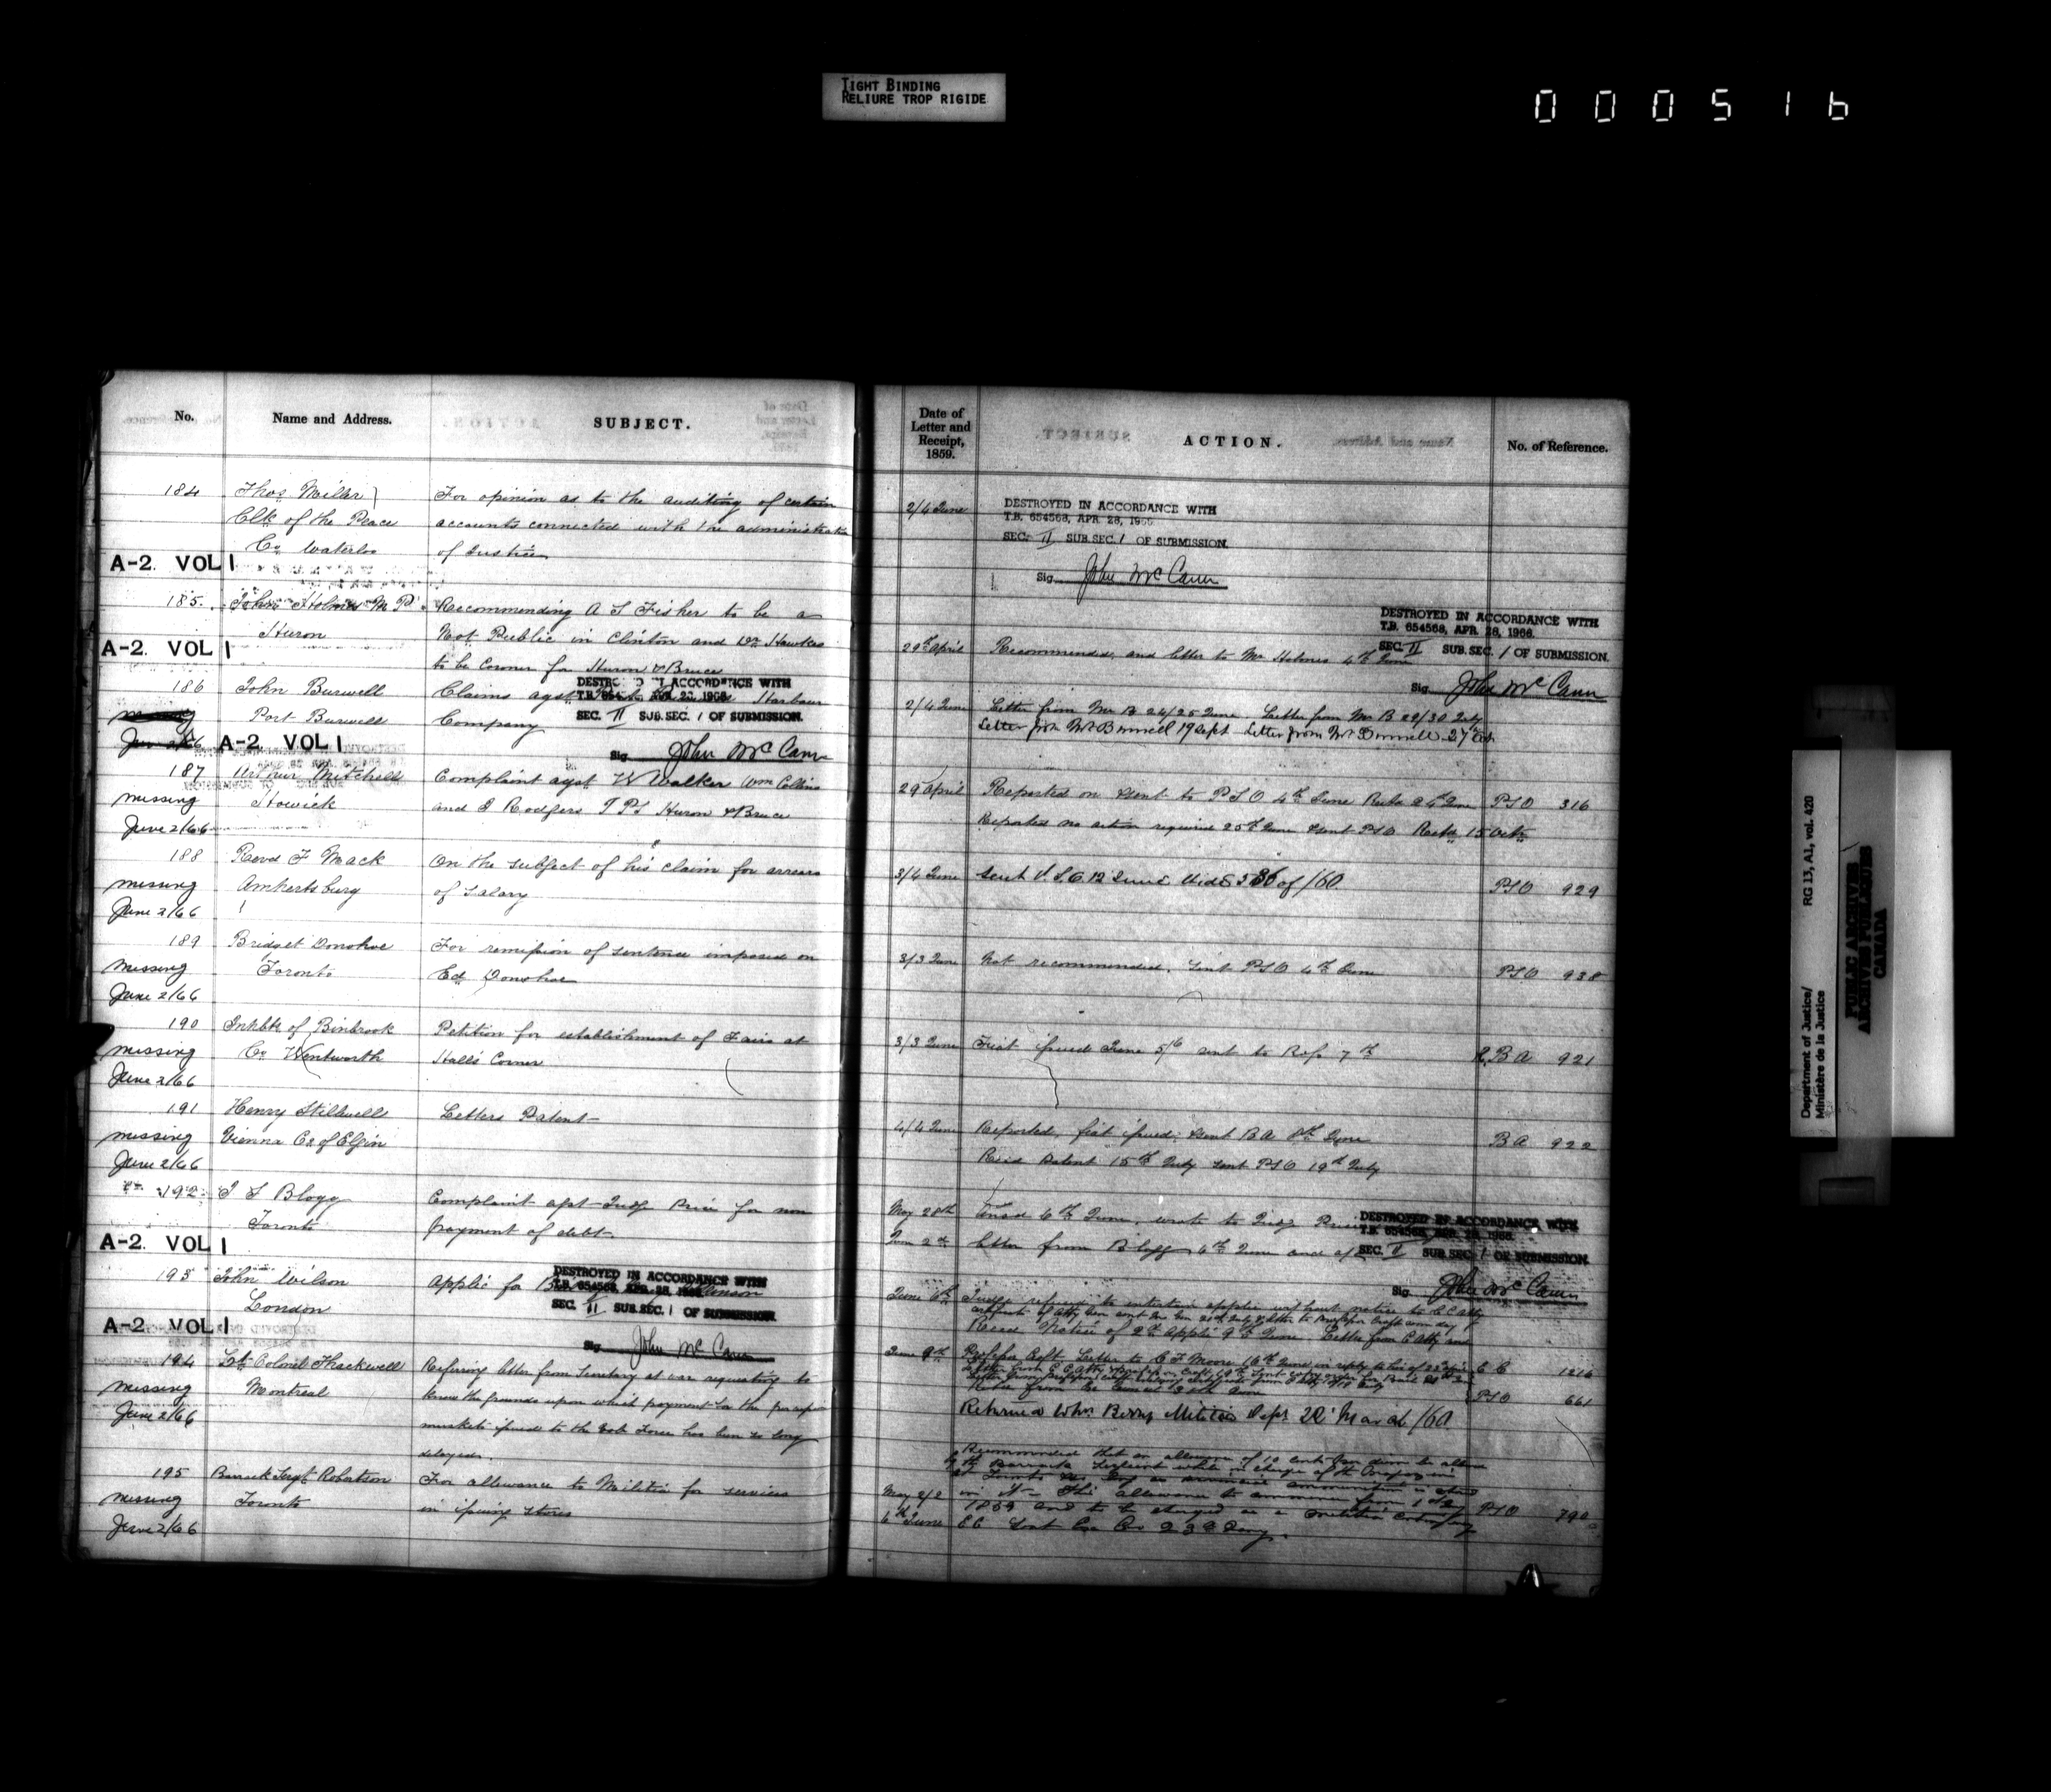 TIGHT BINDING
RELIURE TROP RIGIDE
000516
No. Name and Address. SUBJECT.
184 Thos Miller For opinion as to the auditing of certain
Clk of the Peace accounts connected with the administration
Co Waterloo of Justice
A-2. VOL 1
185. John Holmes M.P. Recommending A S Fisher to be a
Huron Not Public in Clinton and Dr Hawkes
A-2. VOL 1
to be Coroner for Huron & Bruce
186 John Burwell Claims agst Harbour
DESTROYED IN ACCORDANCE WITH
T.B. 654568, APR. 28, 1966.
Port Burwell Company
SEC. II SUB.SEC. 1 OF SUBMISSION.
A-2. VOL 1
Sig. John McCann
187 Arthur Mitchell Complaint agst W Walker Wm Collins
missing Howick and J Rodgers J P's Huron & Bruce
June 2/66
188 Revd F Mack On the subject of his claim for arrears
missing Amherstburg of Salary
June 2/66
189 Bridget Donohoe For remission of sentence imposed on
missing Toronto Ed Donohoe
June 2/66
190 Inhbts of Binbrook Petition for establishment of Fairs at
missing Co Wentworth Hall's Corner
June 2/66
191 Henry Stillwell Letters Patent
missing Vienna Co of Elgin
June 2/66
192 J F Blogg Complaint agst Judge Price for non
Toronto payment of debt
A-2. VOL 1
193 John Wilson Applic for
London
DESTROYED IN ACCORDANCE WITH
T.B. 654568, APR. 28, 1966.
SEC. II SUB.SEC. 1 OF SUBMISSION.
A-2. VOL 1
Sig. John McCann
194 Lt Colonel Thackwell Referring letter from Secretary at war requesting to
missing Montreal know the grounds upon which payment for the
June 2/66 muskets issued to the Vol Force has been so long
delayed.
195 Barrack Sergt Robertson For allowance to Militia for services
missing Toronto in issuing stores
June 2/66
Date of Letter and Receipt, 1859. ACTION. No. of Reference.
2/4 June
DESTROYED IN ACCORDANCE WITH
T.B. 654568, APR. 28, 1966
SEC. II SUB.SEC. 1 OF SUBMISSION.
Sig. John McCann
DESTROYED IN ACCORDANCE WITH
T.B. 654568, APR. 28, 1966.
29th April Recommended, and letter to Mr Holmes 4th June
SEC. II SUB.SEC. 1 OF SUBMISSION.
Sig. John McCann
2/4 June Letter from Mr B 24/25 June Letter from Mr B 29/30 July
Letter from Mr Burwell 19 Sept Letter from Mr Burwell 27 Oct
29 April Reported on & sent to PSO 4th June Retd 24 June PSO 316
Reported no action required 25th June & sent PSO Retd 15 Oct
3/4 June Sent 12 June Vide 586 of /60 PSO 929
3/3 June Not recommended. Sent PSO 4th June PSO 938
3/3 June Fiat issued June 5/6 sent to 7th BA 921
4/4 June Reported, fiat issued, & sent BA 8th June BA 922
Recd Patent 15th July sent PSO 19th July
May 28th 6th June, wrote to Judge
DESTROYED IN ACCORDANCE WITH
T.B. 654568, APR. 28, 1966.
June 2nd Letter from Blogg 4th June and
SEC. II SUB.SEC. 1 OF SUBMISSION.
Sig. John McCann
June 6th Judge refused to entertain applic without notice to C C Atty
Recd Notice of 2nd Applic 9th June Letter from C Atty and
June 9th Professor Croft Letter to C F Moore 16th June in reply to his of C C 1216
PSO 661
Returned Militia Dept 22 March /60
Recommended that an allowance of 10 cents per diem be allowed
May 2/2 in it This allowance to commence from 1st PSO 790
6th June 1859 and to be charged as a Militia Contingency
Department of Justice/
Ministère de la Justice
RG 13, A1, vol. 420
PUBLIC ARCHIVES
ARCHIVES PUBLIQUES
CANADA